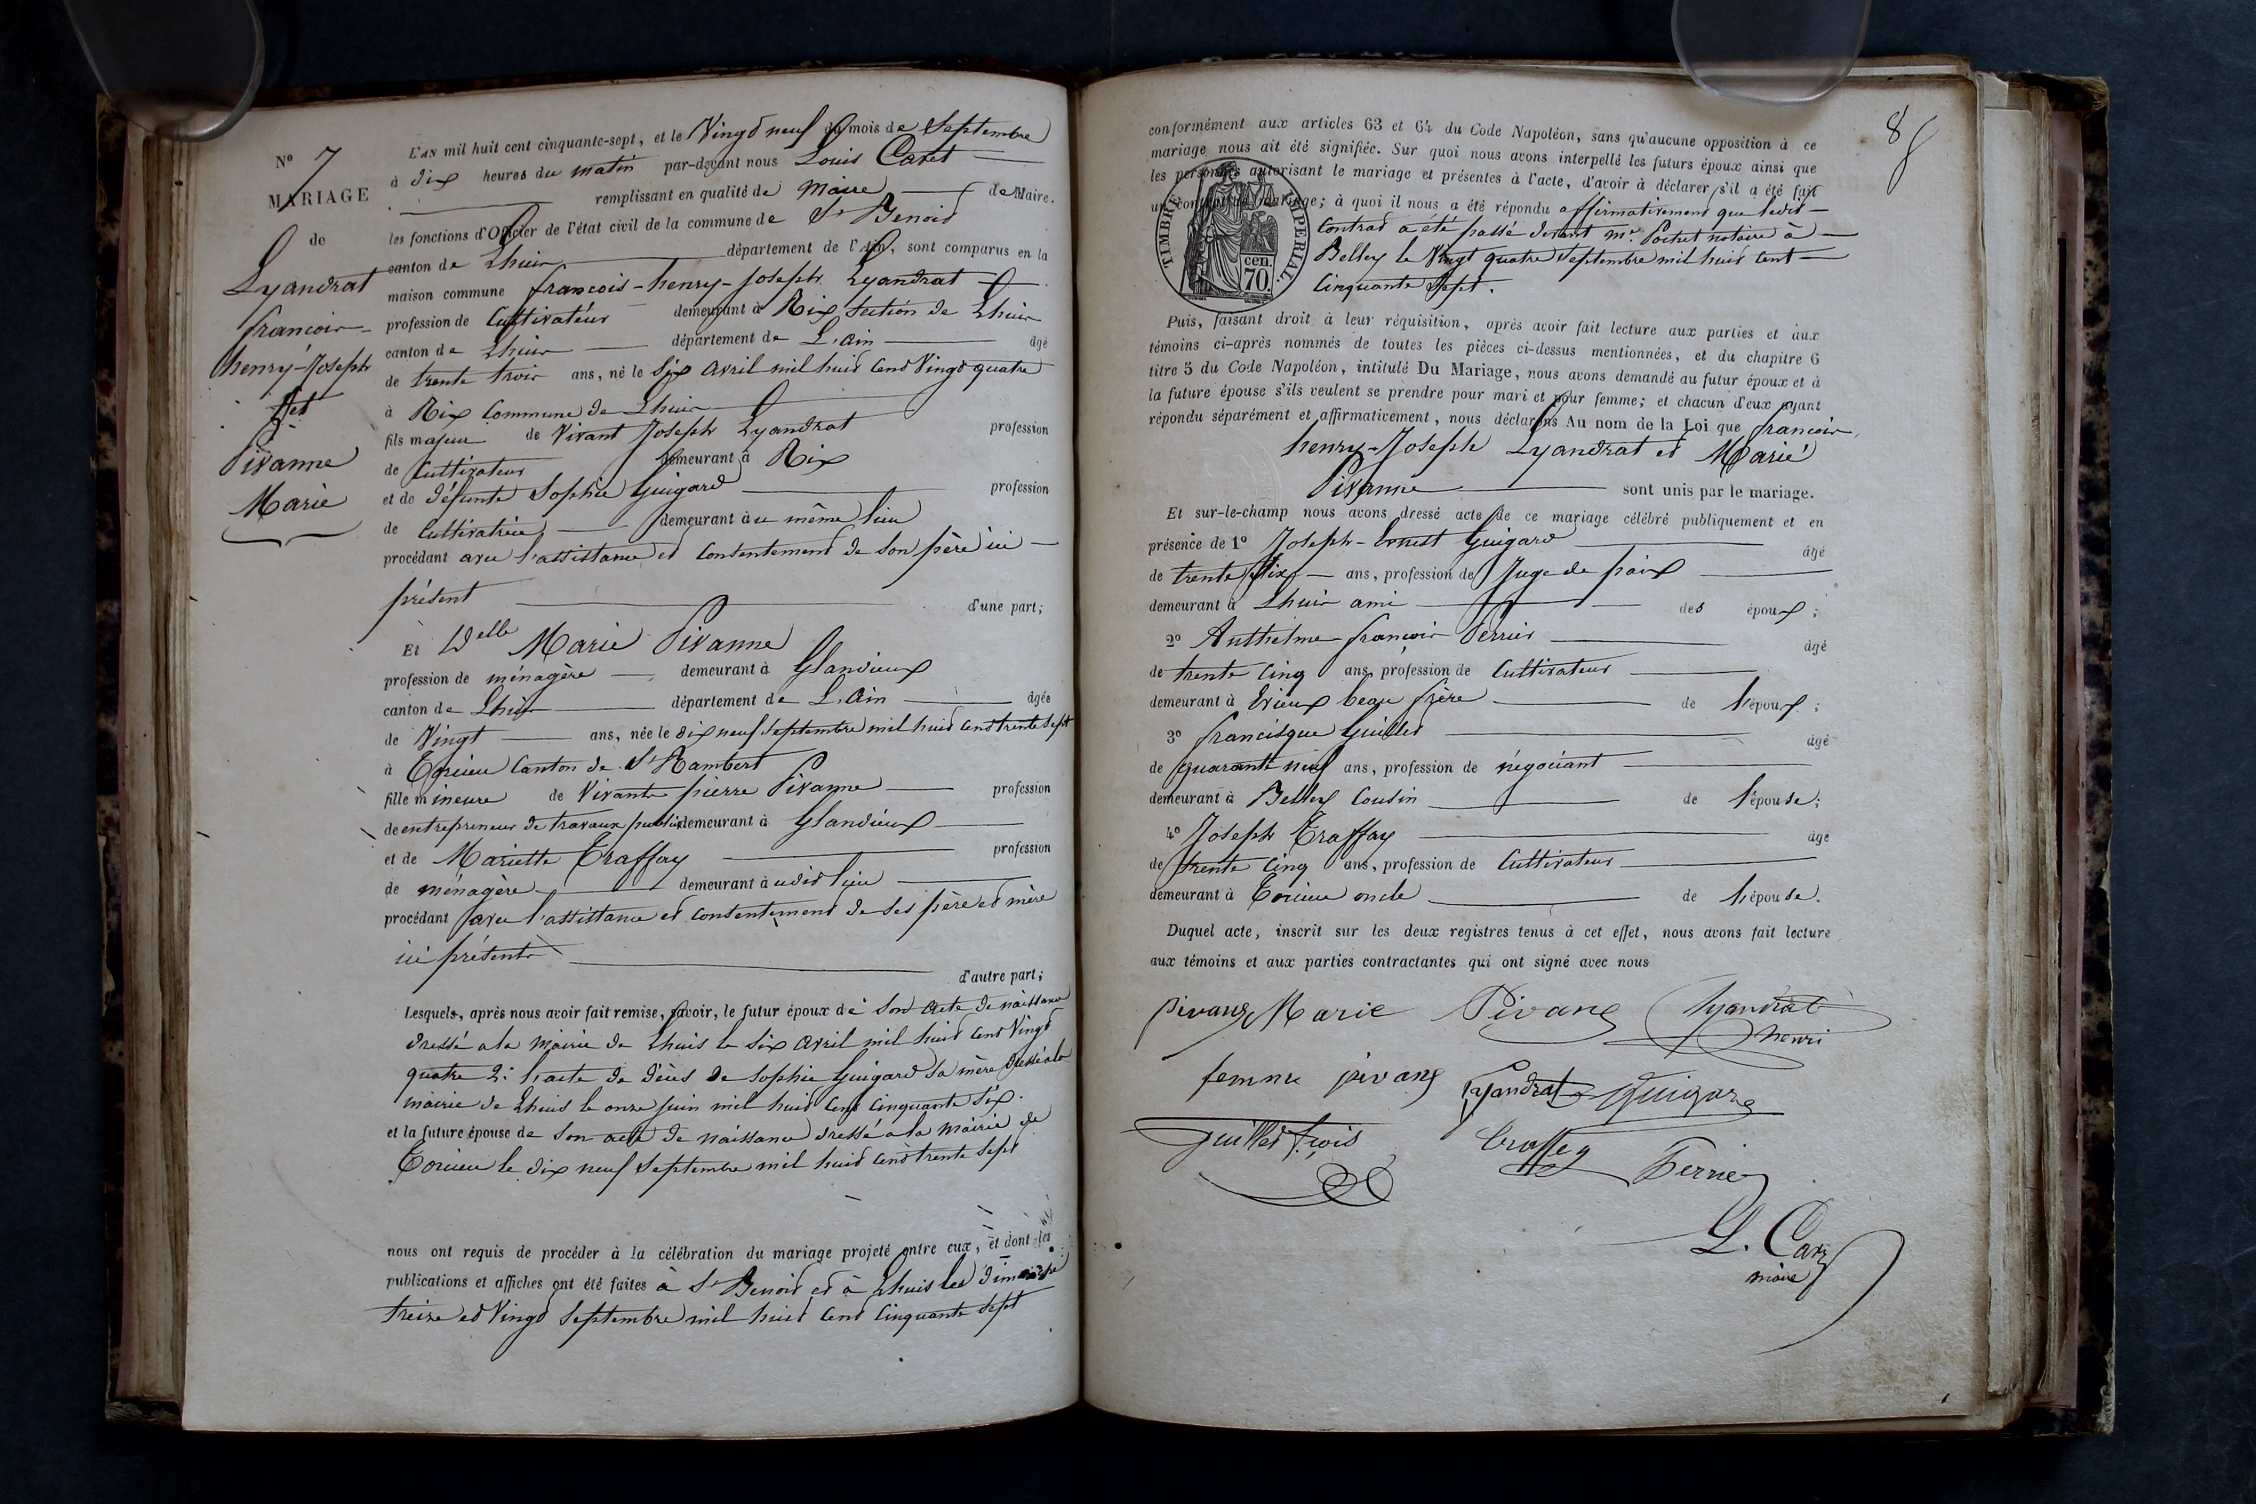 N° 7
MARIAGE
de
Lyandrat
françois-
henry-Joseph
Et
Pivanne
Marie
L'AN mil huit cent cinquante-sept, et le Vingt neuf du mois de Septembre
à dix heures du matin par-devant nous Louis Caret
remplissant en qualité de Maire de Maire.
les fonctions d'Officier de l'état civil de la commune de St Benoit
canton de Lhuis département de l'Ain, sont comparus en la
maison commune françois-henry-Joseph Lyandrat
profession de Cultivateur demeurant à Rix Section de Lhuis
canton de Lhuis département de L'ain âgé
de trente trois ans, né le Six Avril mil huit Cent Vingt quatre
à Rix Commune de Lhuis
fils majeur de Vivant Joseph Lyandrat profession
de Cultivateur demeurant à Rix
et de défunte Sophie Guigard profession
de Cultivatrice demeurant àu même lieu
procédant avec l'assistance et Consentement de Son père ici
présent d'une part;
Et Delle Marie Pivanne
profession de ménagère demeurant à Glandieux
canton de Lhuis département de L'Ain âgée
de Vingt ans, née le dix neuf Septembre mil huit Cent trente Sept
à Torcieu Canton de St Rambert
fille mineure de Vivante pierre Pivanne profession
de entrepreneur de travaux publics demeurant à Glandieux
et de Mariette Traffay profession
de ménagère demeurant à udit lieu
procédant avec l'assistance et Consentement de Ses père et mère
ici présents d'autre part;
Lesquels, après nous avoir fait remise, savoir, le futur époux de Son Acte de naissance
dressé a la Mairie de Lhuis le Six Avril mil huit Cent Vingt
quatre 2° l'acte de décès de Sophie Guigard Sa mère dressé a la
mairie de Lhuis le onze juin mil huit Cent Cinquante Six.
et la future épouse de Son acte de naissance dressé a la Mairie de
Torcieu le dix neuf Septembre mil huit Cent trente Sept
nous ont requis de procéder à la célébration du mariage projeté entre eux, et dont les
publications et affiches ont été faites à St Benoit et à Lhuis les dimanche
treize et Vingt Septembre mil huit Cent Cinquante Sept
8
conformément aux articles 63 et 64 du Code Napoléon, sans qu'aucune opposition à ce
mariage nous ait été signifiée. Sur quoi nous avons interpellé les futurs époux ainsi que
les personnes autorisant le mariage et présentes à l'acte, d'avoir à déclarer s'il a été fait
un contrat de mariage; à quoi il nous a été répondu affirmativement que ledit
Contrat a été passé devant Me Pochet notaire à
Belley le Vingt quatre Septembre mil huit Cent
Cinquante Sept.
TIMBRE IMPERIAL.
cen.
70.
Puis, faisant droit à leur réquisition, après avoir fait lecture aux parties et aux
témoins ci-après nommés de toutes les pièces ci-dessus mentionnées, et du chapitre 6
titre 5 du Code Napoléon, intitulé Du Mariage, nous avons demandé au futur époux et à
la future épouse s'ils veulent se prendre pour mari et pour femme; et chacun d'eux ayant
répondu séparément et affirmativement, nous déclarons Au nom de la Loi que françois,
henry-Joseph Lyandrat et Marie
Pivanne sont unis par le mariage.
Et sur-le-champ nous avons dressé acte de ce mariage célébré publiquement et en
présence de 1° Joseph-Ernest Guigard âgé
de trente Six ans, profession de Juge de paix
demeurant à Lhuis ami des époux;
2° Anthelme françois Perrier âgé
de trente Cinq ans, profession de Cultivateur
demeurant à Evieux beau frère de l'époux;
3° francisque Guillet âgé
de quarante neuf ans, profession de négociant
demeurant à Belley Cousin de l'épouse;
4° Joseph Traffay âgé
de trente Cinq ans, profession de Cultivateur
demeurant à Torcieu oncle de l'épouse.
Duquel acte, inscrit sur les deux registres tenus à cet effet, nous avons fait lecture
aux témoins et aux parties contractantes qui ont signé avec nous
pivang Marie Pivang Lyandrat
henri
femme pivang Lyandrat Guigard
guillet fçois Traffey Perrier
L. Caret
maire